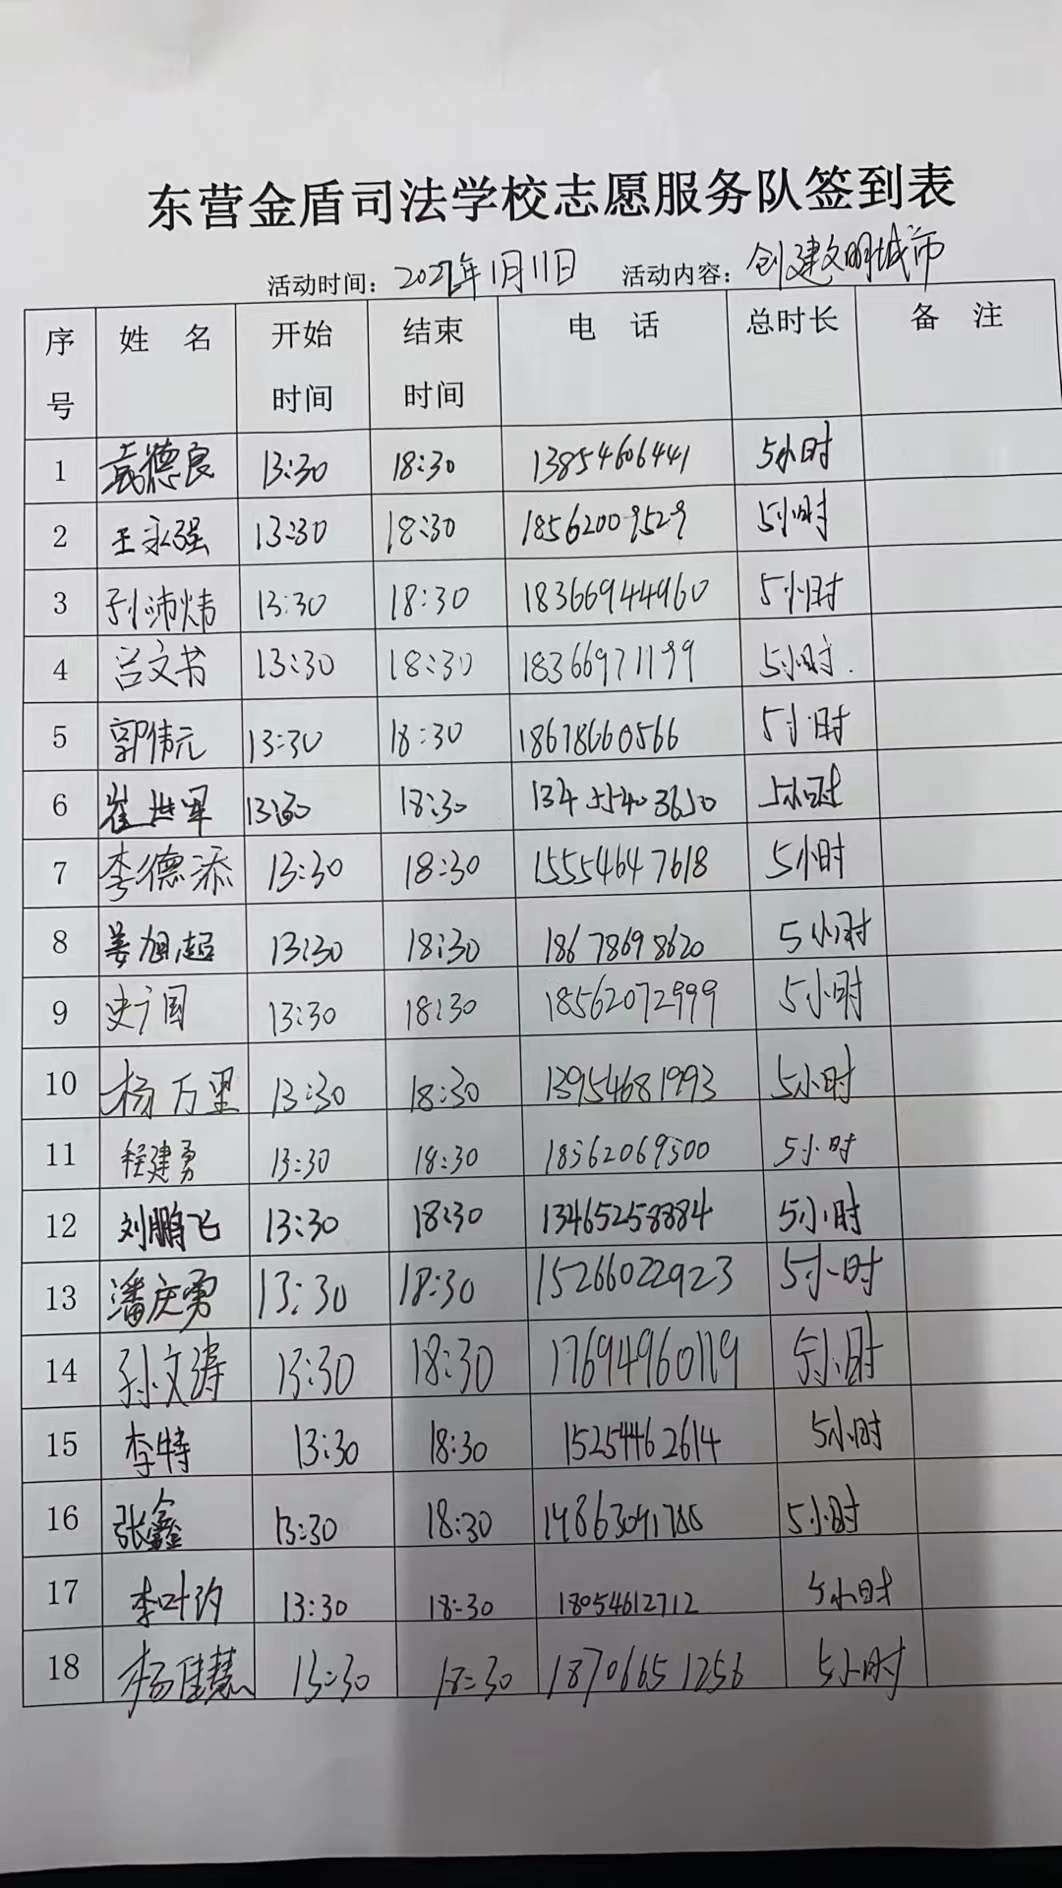 东营金盾司法学校志愿服务队签到表
活动时间：2022年1月11日 活动内容：创建文明城市
序号 姓 名 开始时间 结束时间 电 话 总时长 备 注
1 袁德良 13:30 18:30 13854606441 5小时
2 王永强 13:30 18:30 18562009529 5小时
3 孙沛炜 13:30 18:30 18366944960 5小时
4 吕文书 13:30 18:30 18366971199 5小时.
5 郭伟元 13:30 18:30 18678660566 5小时
6 崔世军 13:30 18:30 13455403650 5小时
7 李德添 13:30 18:30 15554647618 5小时
8 姜旭超 13:30 18:30 18678698620 5小时
9 史广国 13:30 18:30 18562072999 5小时
10 杨万里 13:30 18:30 13954681993 5小时
11 程建勇 13:30 18:30 18562069500 5小时
12 刘鹏飞 13:30 18:30 13465258884 5小时
13 潘庆勇 13:30 18:30 15266022923 5小时
14 孙文涛 13:30 18:30 17694960119 5小时
15 李特 13:30 18:30 15254462614 5小时
16 张鑫 13:30 18:30 5小时
17 李叶汐 13:30 18:30 18054612712 5小时
18 杨佳慧 13:30 18:30 18706651256 5小时